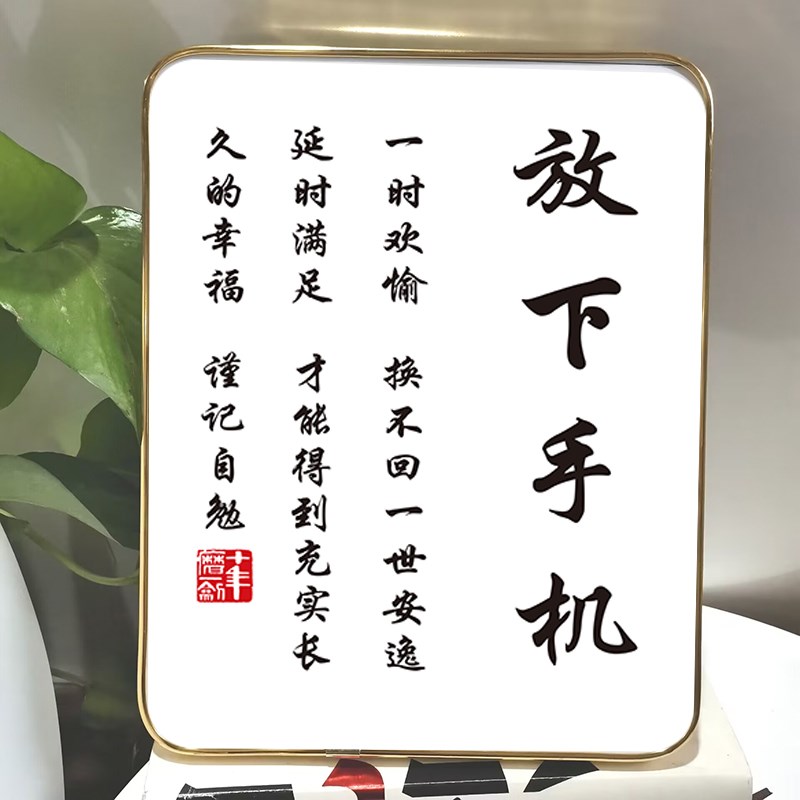 放下手机
一时欢愉 换不回一世安逸
延时满足 才能得到充实长
久的幸福 谨记自勉
十年磨一剑